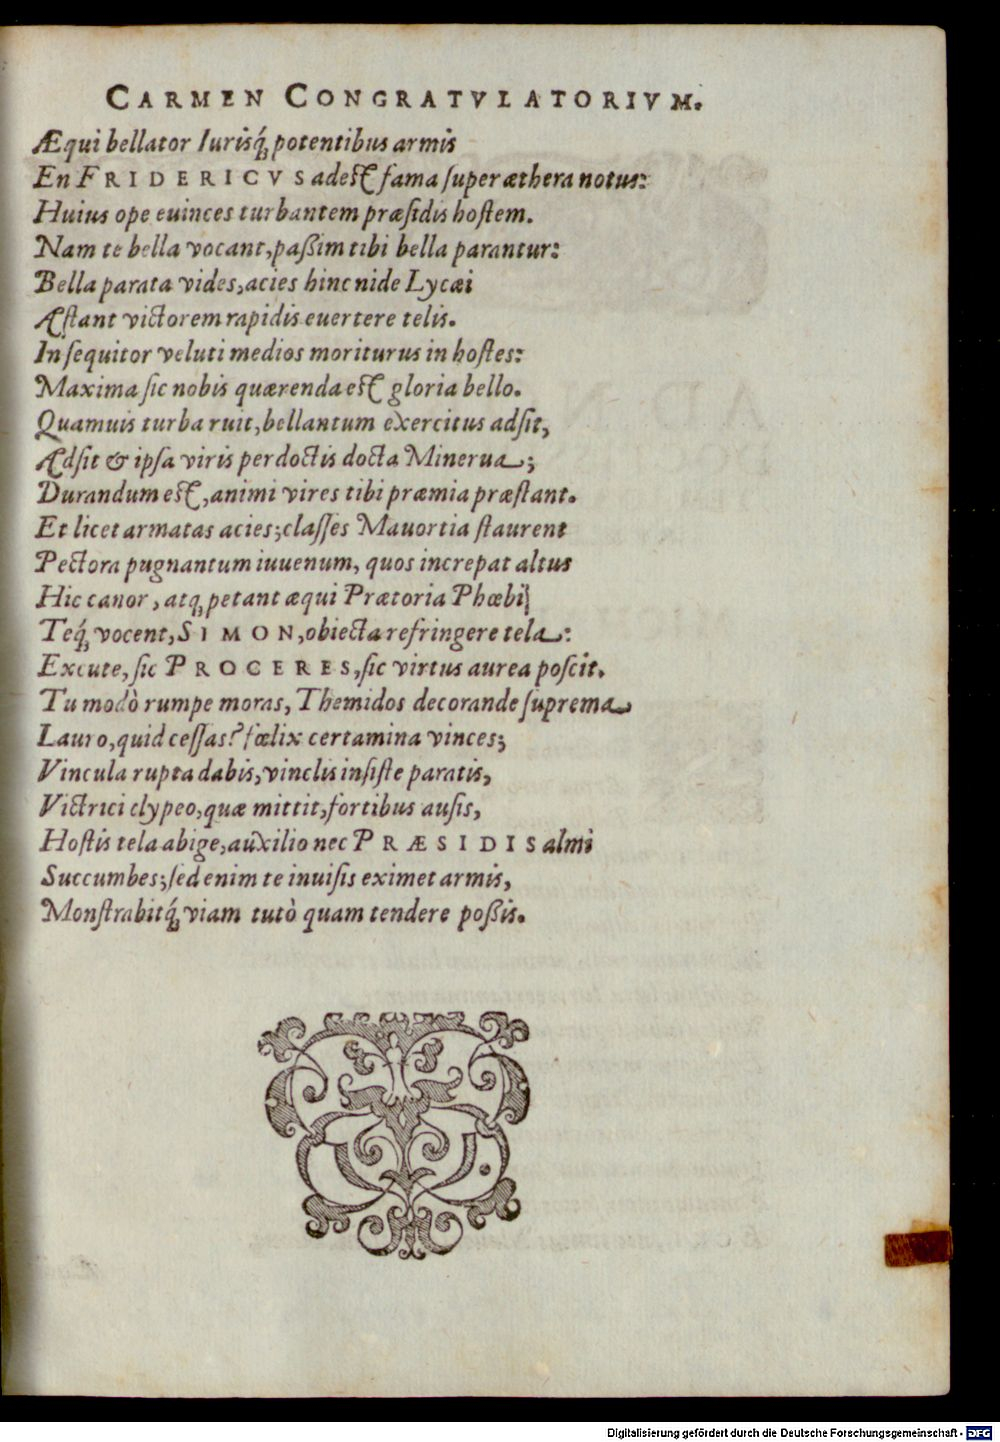 CARMEN CONGRATVLATORIVM.
Æqui bellator Iurisq́; potentibus armis
En FRIDERICVS adest fama super æthera notus:
Huius ope euinces turbantem præsidis hostem.
Nam te bella vocant, paßim tibi bella parantur:
Bella parata vides, acies hinc nide Lycæi
Æstant victorem rapidis euertere telis.
Insequitor veluti medios moriturus in hostes:
Maxima sic nobis quærenda est gloria bello.
Quamuis turba ruit, bellantum exercitus adsit,
Ædsit & ipsa viris perdoctis docta Minerua;
Durandum est, animi vires tibi præmia præstant.
Et licet armatas acies; classes Mauortia staurent
Pectora pugnantum iuuenum, quos increpat altus
Hic canor, atq; petant æqui Prætoria Phœbi
Teq́; vocent, SIMON, obiecta refringere tela:
Excute, sic PROCERES, sic virtus aurea poscit.
Tu modò rumpe moras, Themidos decorande suprema
Lauro, quid cessas? fœlix certamina vinces;
Vincula rupta dabis, vinclis insiste paratis,
Victrici clypeo, quæ mittit, fortibus ausis,
Hostis tela abige, auxilio nec PRÆSIDIS almi
Succumbes; sed enim te inuisis eximet armis,
Monstrabitq́; viam tutò quam tendere poßis.
Digitalisierung gefördert durch die Deutsche Forschungsgemeinschaft - DFG